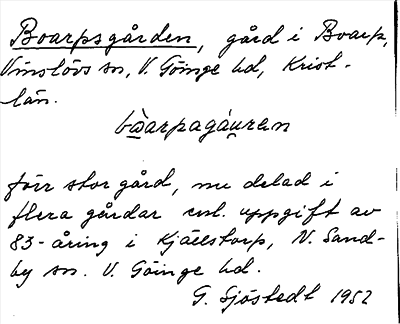 Boarpsgården, gård i Boarp,
Vinslövs sn, V. Göinge hd, Krist-
län.
förr stor gård, nu delad i
flera gårdar enl. uppgift av
83-åring i Kjällstorp, N. Sand-
by sn. V. Göinge hd.
G. Sjöstedt 1952